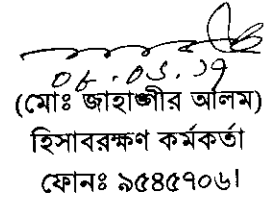 ০৮.০৫.১৭
(মোঃ জাহাঙ্গীর আলম)
হিসাবরক্ষণ কর্মকর্তা
ফোনঃ ৯৫৪৫৭০৬।